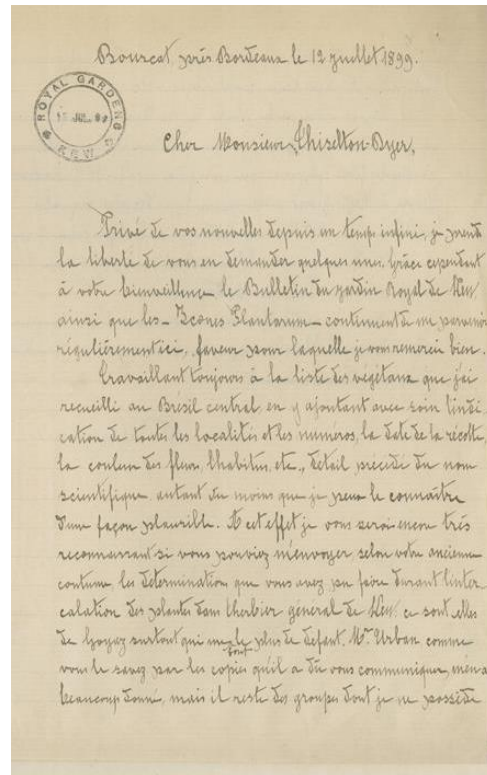 Bouscat près Bordeaux le 12 juillet 1899.
ROYAL GARDENS
JUL. 99
KEW
Cher Monsieur Thiselton-Dyer,
Privé de vos nouvelles depuis un temps infini, je prend
la liberté de vous en demander quelques unes. Grâce cependant
à votre bienveillence le Bulletin du jardin Royal de Kew
ainsi que les - Icones Plantarum - continuent de me parvenir
régulièrement ici, faveur pour laquelle je vous remercie bien.
Travaillant toujours à la liste des végétaux que j'ai
recueilli au Brésil central, en y ajoutant avec soin l'indi
cation de toutes les localités et les numéros, la date de la récolte,
la couleur des fleurs, l'habitus, etc., détail précédé du nom
scientifique autant du moins que je peux le connaître
d'une façon plausible. A cet effet je vous serai encore très
reconnaissant si vous pouviez m'envoyer selon votre ancienne
coutume, les détermination que vous avez pu faire durant l'inter
calation des plantes dans l'herbier général de Kew, ce sont elles
de Goyaz surtout qui me font le plus de défaut. Mr. Urban comme
vous le savez par les copies qu'il a dû vous communiquer, m'en a
beaucoup donné, mais il reste des groupes dont je ne possède